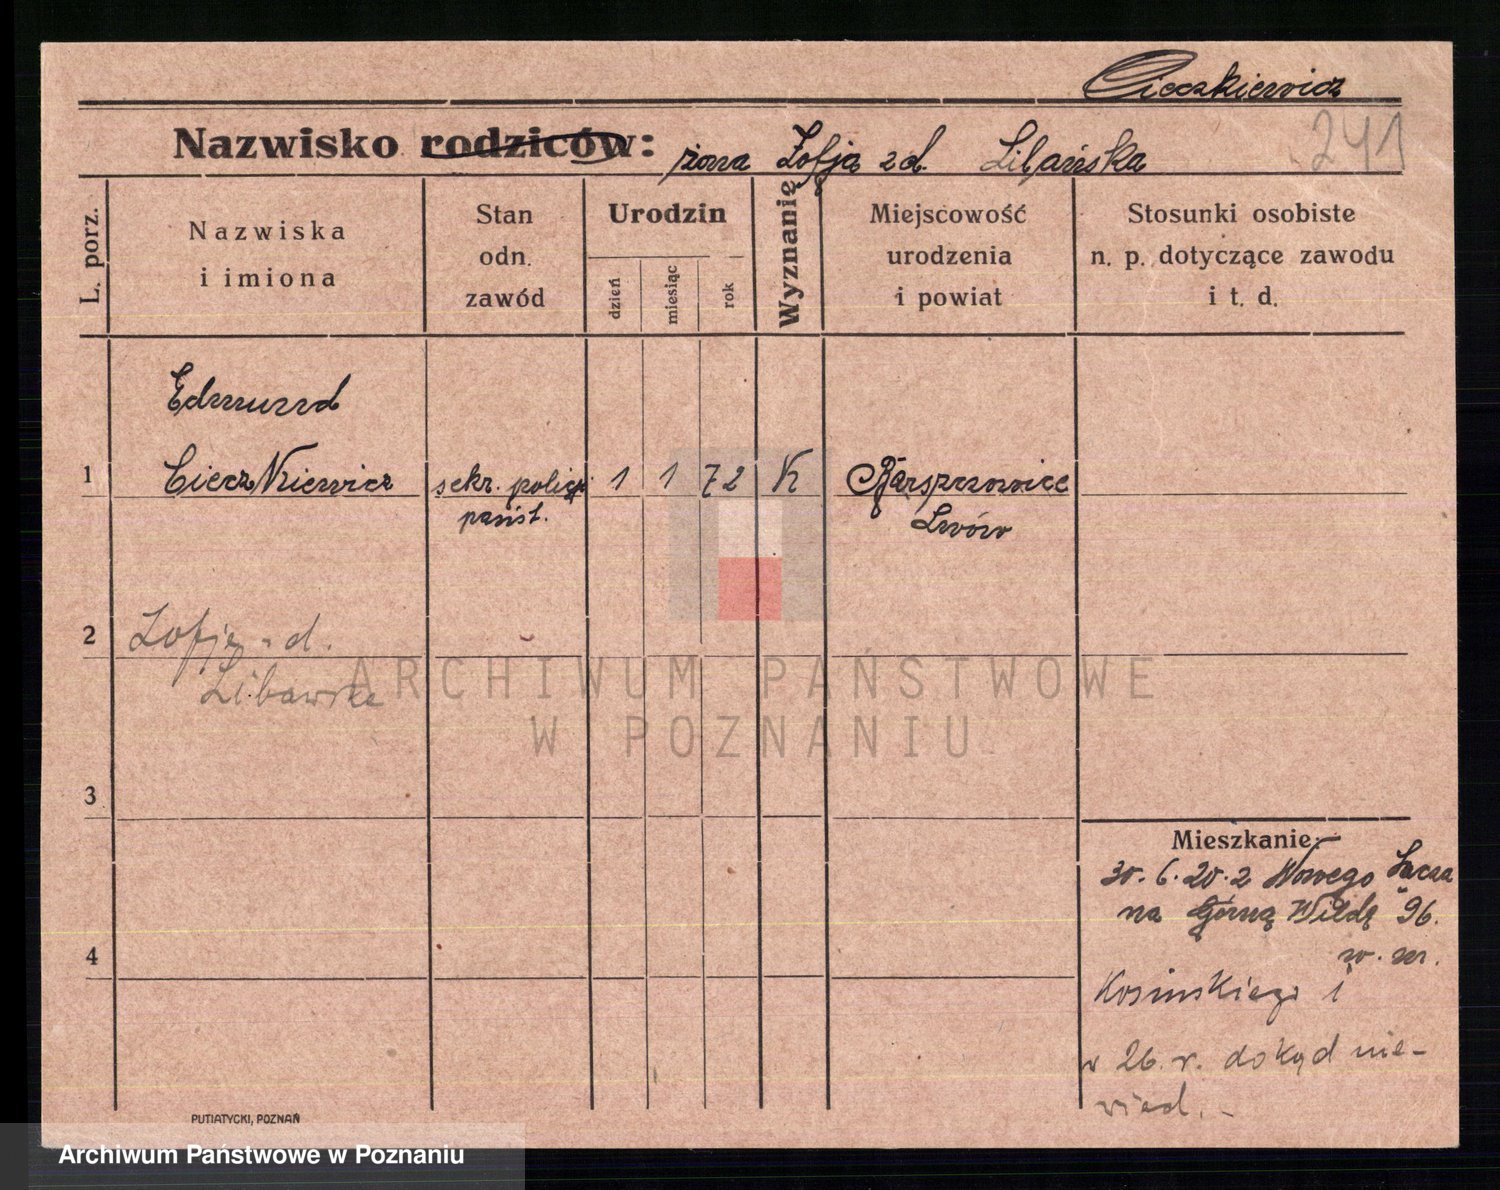 Cieczkiewicz
Nazwisko rodziców: żona Zofja zd. Libańska
241
L. porz.
Nazwiska
i imiona
Stan
odn.
zawód
Urodzin
dzień
miesiąc
rok
Wyznanie
Miejscowość
urodzenia
i powiat
Stosunki osobiste
n. p. dotyczące zawodu
i t. d.
Edmund
1 Cieczkiewicz sekr. policji 1 1 72 K Barszczowice
państ. Lwów
2 Zofja z d.
Libawska
ARCHIWUM PAŃSTWOWE
W POZNANIU
3
Mieszkanie:
30. 6. 20. z Nowego Sącza
na Górną Wildę 96.
4
Kosińskiego 1
w 26. r. dokąd nie-
wiad. -
PUTIATYCKI, POZNAŃ
Archiwum Państwowe w Poznaniu